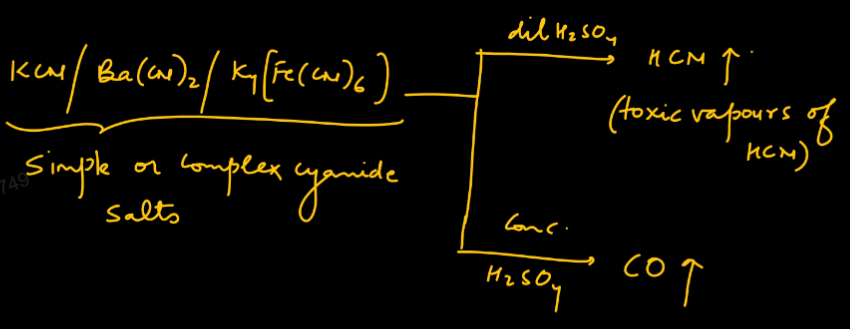 KCN / Ba(CN)2 / K4[Fe(CN)6)
Simple or complex cyanide
salts
749
dil H2SO4
HCN ↑
(toxic vapours of
HCN)
Conc.
H2SO4
CO ↑